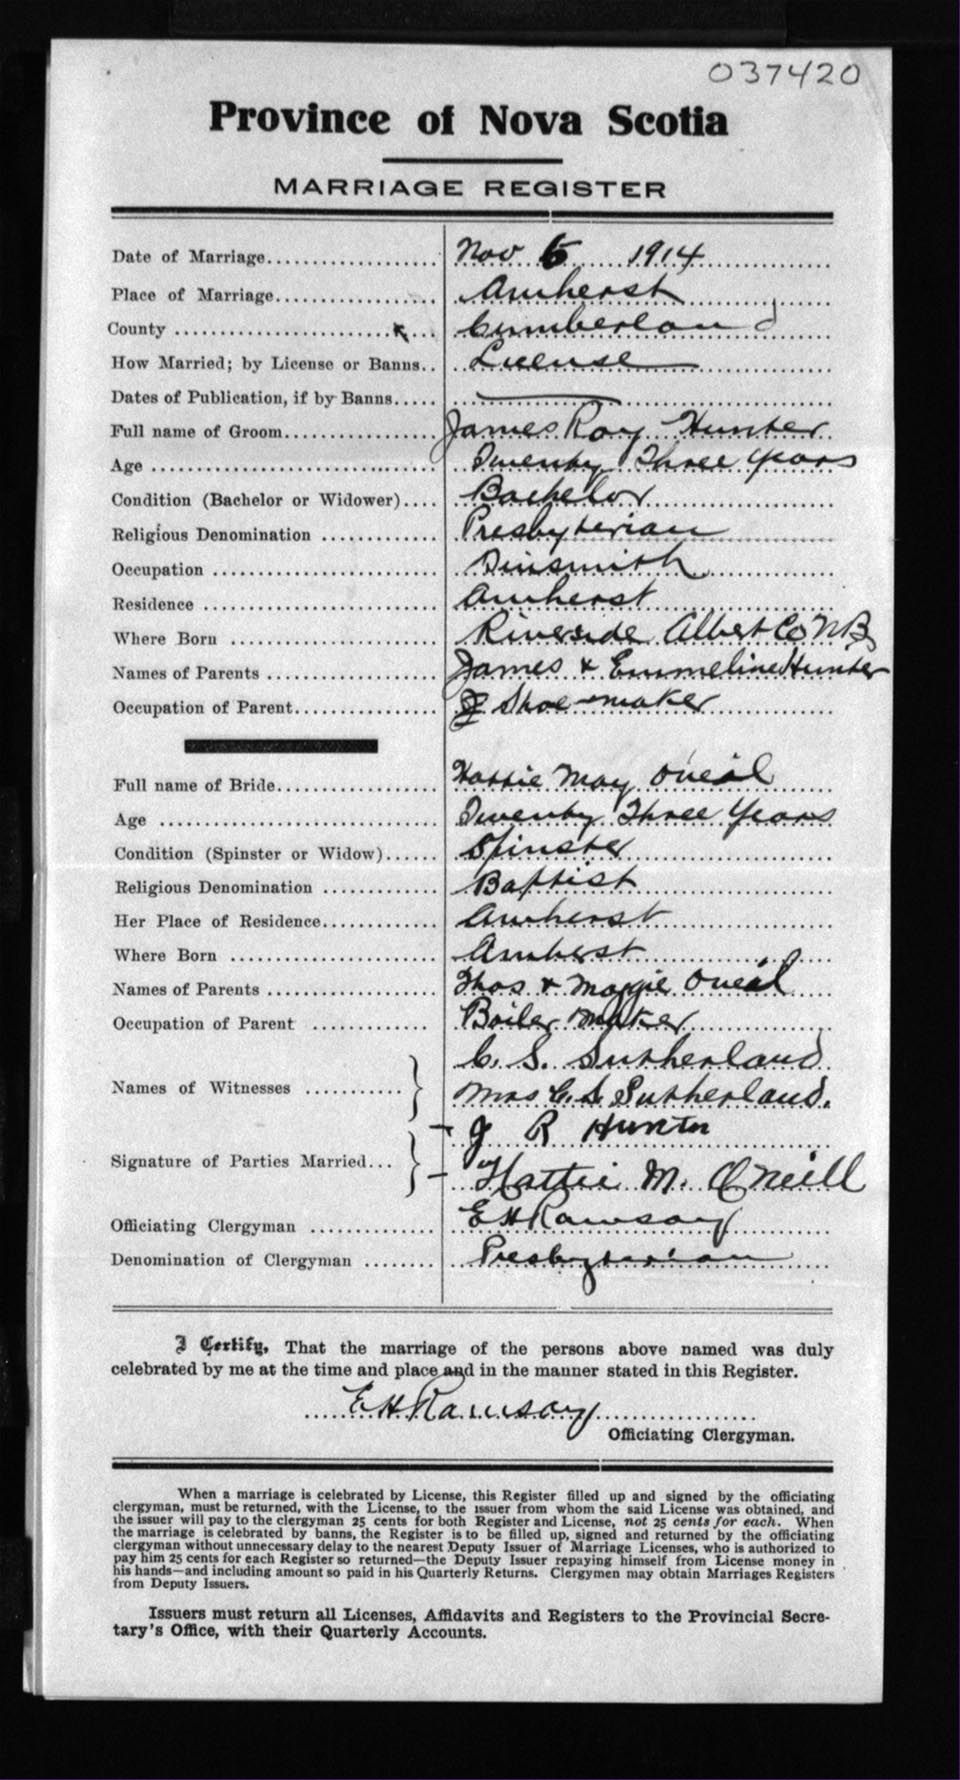 037420
Province of Nova Scotia
MARRIAGE REGISTER
Date of Marriage................... Nov 5 1914
Place of Marriage.................. Amherst
County ......................... Cumberland
How Married; by License or Banns.. License
Dates of Publication, if by Banns..... —
Full name of Groom................. James Roy Hunter
Age ............................. Twenty Three Years
Condition (Bachelor or Widower).... Bachelor
Religious Denomination ............. Presbyterian
Occupation ......................... Tinsmith
Residence .......................... Amherst
Where Born ....................... Riverside Albert Co NB
Names of Parents ................... James & Emmeline Hunter
Occupation of Parent................ Shoe-maker
Full name of Bride.................. Hattie May Oneal
Age ............................... Twenty Three Years
Condition (Spinster or Widow)...... Spinster
Religious Denomination ............. Baptist
Her Place of Residence............. Amherst
Where Born ....................... Amherst
Names of Parents ................... Thos & Maggie Oneal
Occupation of Parent .............. Boiler Maker
C. S. Sutherland
Names of Witnesses ........... Mrs C. S. Sutherland.
J R Hunter
Signature of Parties Married... Hattie M. O'Neill
Officiating Clergyman .............. E H Ramsay
Denomination of Clergyman ........ Presbyterian
I Certify, That the marriage of the persons above named was duly
celebrated by me at the time and place and in the manner stated in this Register.
E H Ramsay
Officiating Clergyman.
When a marriage is celebrated by License, this Register filled up and signed by the officiating
clergyman, must be returned, with the License, to the issuer from whom the said License was obtained, and
the issuer will pay to the clergyman 25 cents for both Register and License, not 25 cents for each. When
the marriage is celebrated by banns, the Register is to be filled up, signed and returned by the officiating
clergyman without unnecessary delay to the nearest Deputy Issuer of Marriage Licenses, who is authorized to
pay him 25 cents for each Register so returned—the Deputy Issuer repaying himself from License money in
his hands—and including amount so paid in his Quarterly Returns. Clergymen may obtain Marriages Registers
from Deputy Issuers.
Issuers must return all Licenses, Affidavits and Registers to the Provincial Secre-
tary's Office, with their Quarterly Accounts.